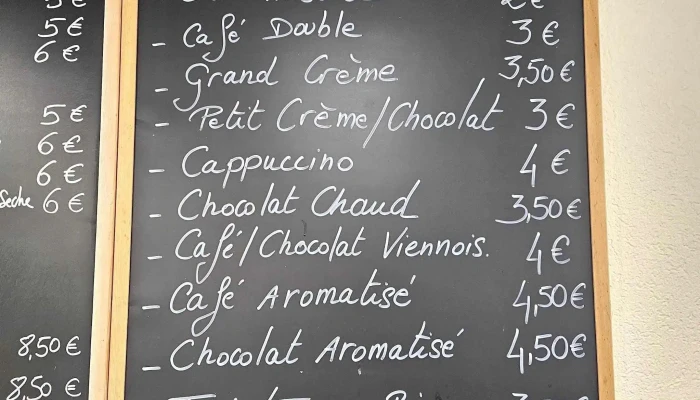 5 €
5 €
6 €
5 €
6 €
6 €
Seche 6 €
8,50 €
8,50 €
2 €
- Café Double 3 €
- Grand Crème 3,50 €
- Petit Crème/Chocolat 3 €
- Cappuccino 4 €
- Chocolat Chaud 3,50 €
- Café/Chocolat Viennois. 4 €
- Café Aromatisé 4,50 €
- Chocolat Aromatisé 4,50 €